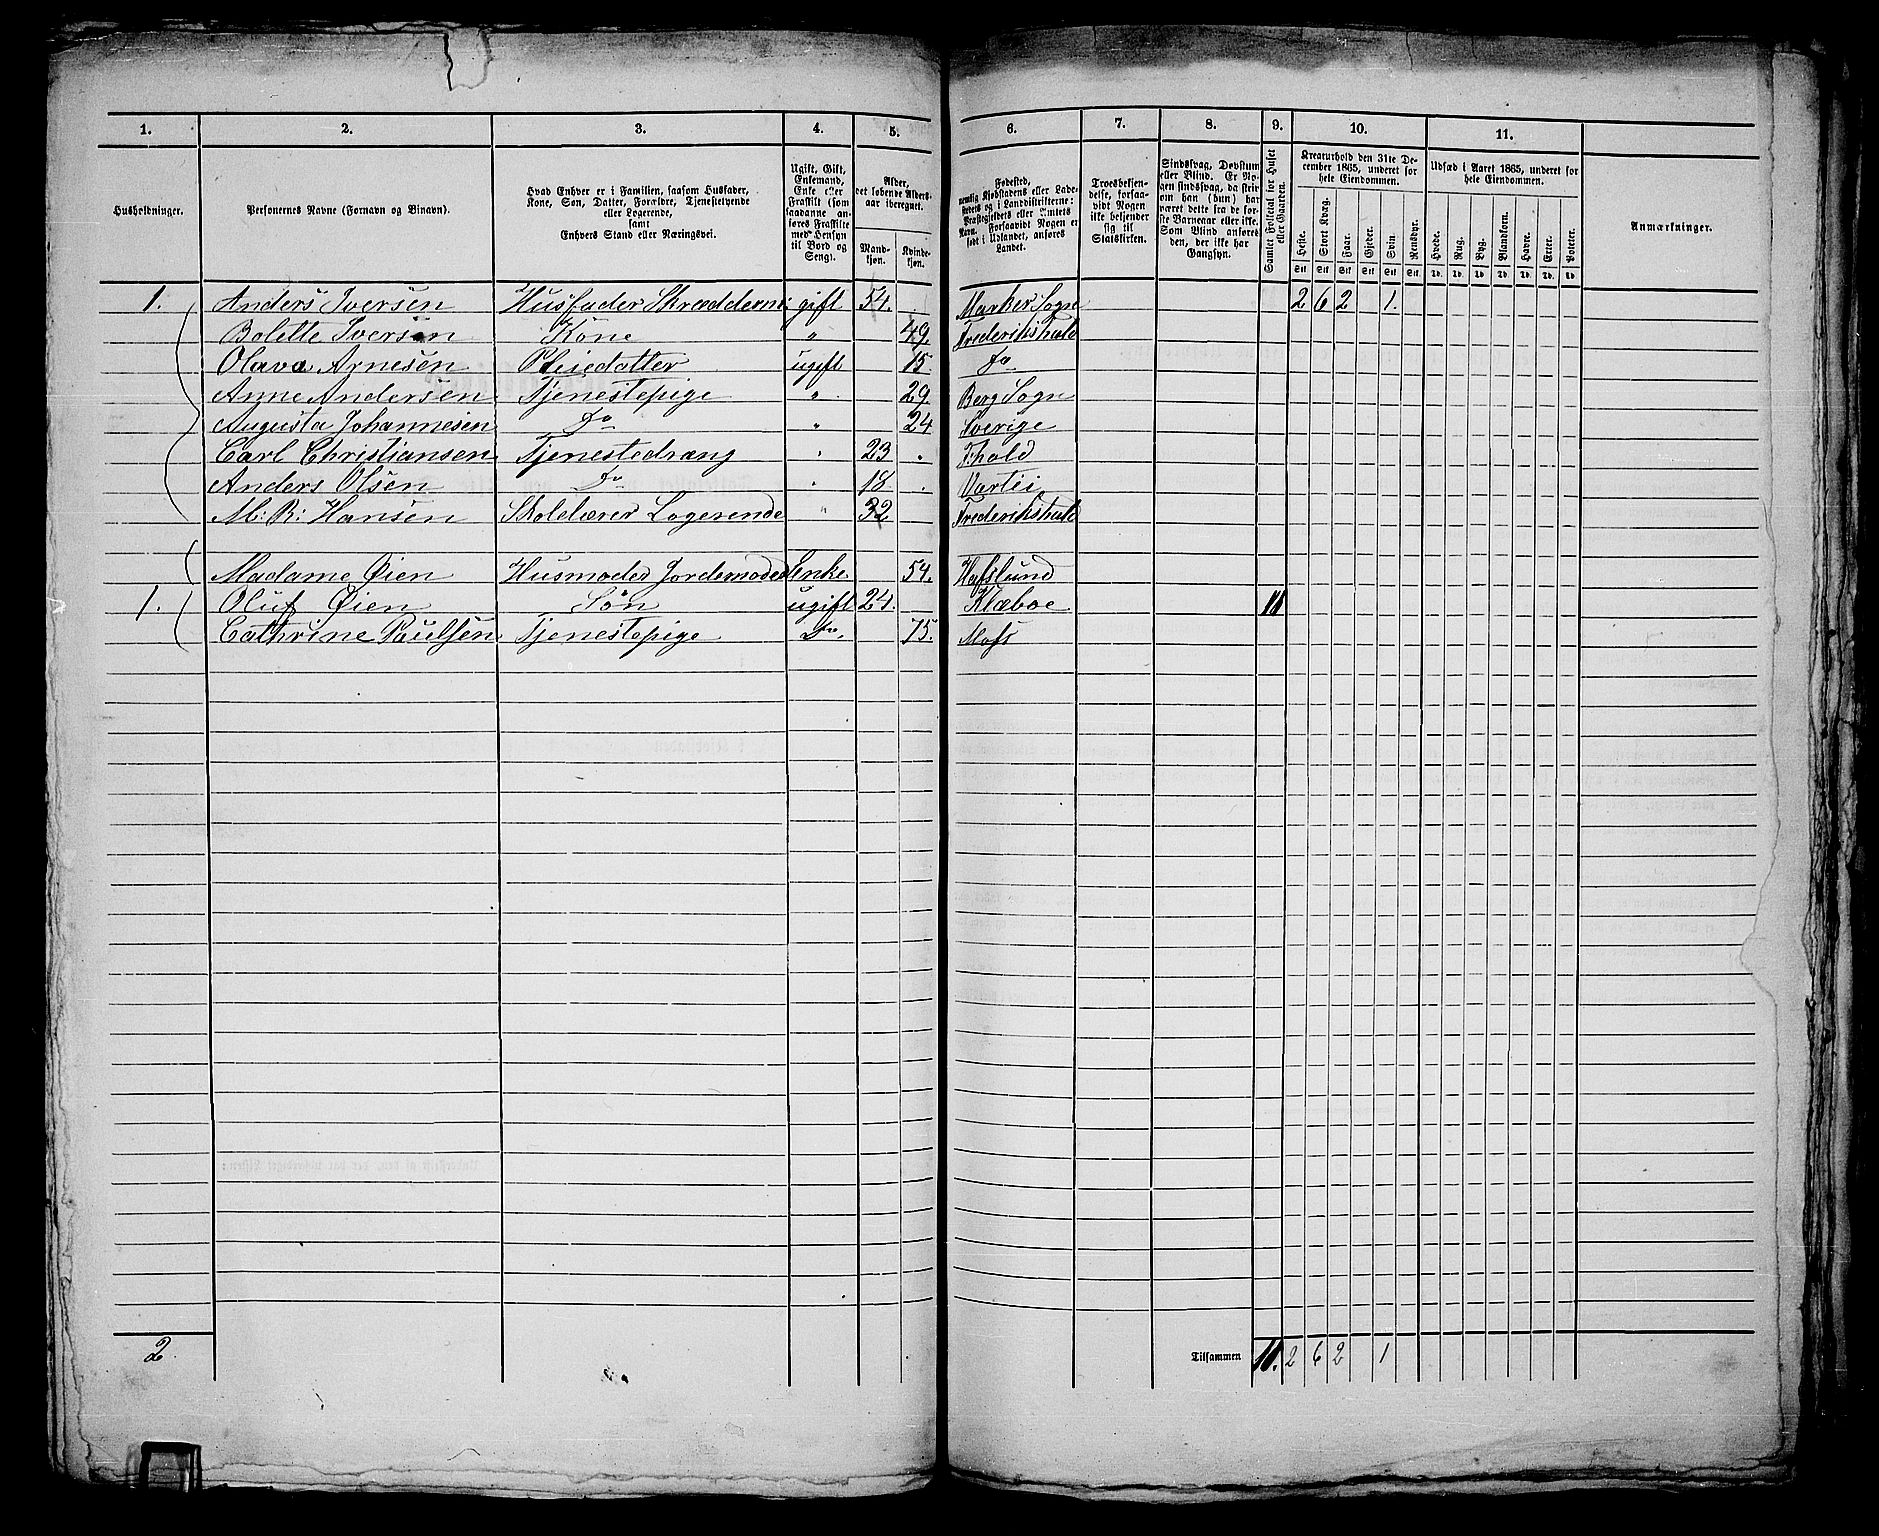 1. 2. 3. 4. 5. 6. 7. 8. 9. 10. 11.
Husholdninger.
Personernes Navne (Fornavn og Binavn).
Hvad Enhver er i Familien, saasom Husfader,
Kone, Søn, Datter, Forældre, Tjenestetyende
eller Logerende,
samt
Enhvers Stand eller Næringsvei.
Ugift, Gift,
Enkemand,
Enke eller
Fraskilt (som
saadanne an-
føres Fraskilte
med Hensyn
til Bord og
Seng).
Alder,
det løbende Alders-
aar iberegnet.
Mand-
kjøn.
Kvinde-
kjøn.
Fødested,
nemlig Kjøbstadens eller Lade-
stedets og i Landdistrikterne:
Præstegjeldets eller Amtets
Navn. Forsaavidt Nogen er
født i Udlandet, anføres
Landet.
Troesbekjen-
delse, forsaa-
vidt Nogen
ikke bekjender
sig til
Statskirken.
Sindssvag, Døvstum
eller Blind. Er No-
gen sindssvag, da skriv
om han (hun) har
været dette fra de før-
ste Barneaar eller ikke.
Som Blind anføres
den, der ikke har
Gangsyn.
Samlet Folketal for Huset
eller Gaarden.
Kreaturhold den 31te De-
cember 1865, underet for
hele Eiendommen.
Heste. Stort Kvæg. Faar. Gjeder. Svin. Rensdyr.
Stk Stk Stk Stk Stk Stk
Udsæd i Aaret 1865, underet for
hele Eiendommen.
Hvede. Rug. Byg. Blandkorn. Havre. Erter. Poteter.
Td. Td. Td. Td. Td. Td. Td.
Anmærkninger.
1. Anders Iversen Husfader Skræddermr: gift 54. Marker Sogn 2 6 2 1.
Bolette Iversen Kone " 49. Frederikshald
Olava Arnesen Pleiedatter ugift 15 Do
Anne Andersen Tjenestepige " 29. Berg Sogn
Augusta Johannesen Do " 24 Sverige
Carl Christiansen Tjenestedræng " 23 Fhald
Anders Olsen Do " 18 Vartei
M: R: Hansen Skolelærer Logerende " 32 Frederikshald
Madame Øien Husmoder Jordemoder Enke 54. Hafslund
1. Oluf Øien Søn ugift 24. Klæboe 11
Cathrine Paulsen Tjenestepige Do. 75. Moss
2. Tilsammen 11. 2 6 2 1